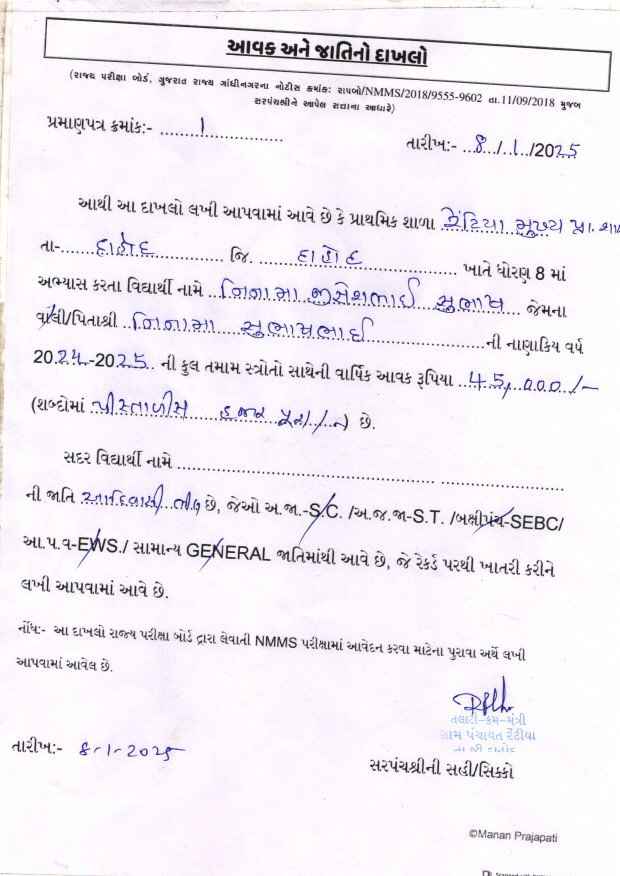 આવક અને જાતિનો દાખલો
(રાજ્ય પરીક્ષા બોર્ડ, ગુજરાત રાજ્ય ગાંધીનગરના નોટીસ ક્રમાંક: રાપબો/NMMS/2018/9555-9602 તા.11/09/2018 મુજબ
સરપંચશ્રીને આપેલ સત્તાના આધારે)
પ્રમાણપત્ર ક્રમાંક:- 1
તારીખ:- 8/1/2025
આથી આ દાખલો લખી આપવામાં આવે છે કે પ્રાથમિક શાળા રેંટિયા મુખ્ય પ્રા. શા
તા- દાહોદ જિ. દાહોદ ખાતે ધોરણ 8 માં
અભ્યાસ કરતા વિદ્યાર્થી નામે નિનામા સુભાષ જેમના
વાલી/પિતાશ્રી નિનામા સુભાષભાઈ ની નાણાકિય વર્ષ
2024-2025 ની કુલ તમામ સ્ત્રોતો સાથેની વાર્ષિક આવક રૂપિયા 45,000/-
(શબ્દોમાં પીસ્તાળીસ હજાર પૂરા) છે.
સદર વિદ્યાર્થી નામે
ની જાતિ આદિવાસી ભીલ છે, જેઓ અ.જા.-S.C. /અ.જ.જા-S.T. /બક્ષીપંચ-SEBC/
આ.પ.વ-EWS./ સામાન્ય GENERAL જાતિમાંથી આવે છે, જે રેકર્ડ પરથી ખાતરી કરીને
લખી આપવામાં આવે છે.
નોંધ:- આ દાખલો રાજ્ય પરીક્ષા બોર્ડ દ્રારા લેવાતી NMMS પરીક્ષામાં આવેદન કરવા માટેના પુરાવા અર્થે લખી
આપવામાં આવેલ છે.
તલાટી-કમ-મંત્રી
ગ્રામ પંચાયત રેંટીયા
તારીખ:- 8-1-2025
સરપંચશ્રીની સહી/સિક્કો
©Manan Prajapati